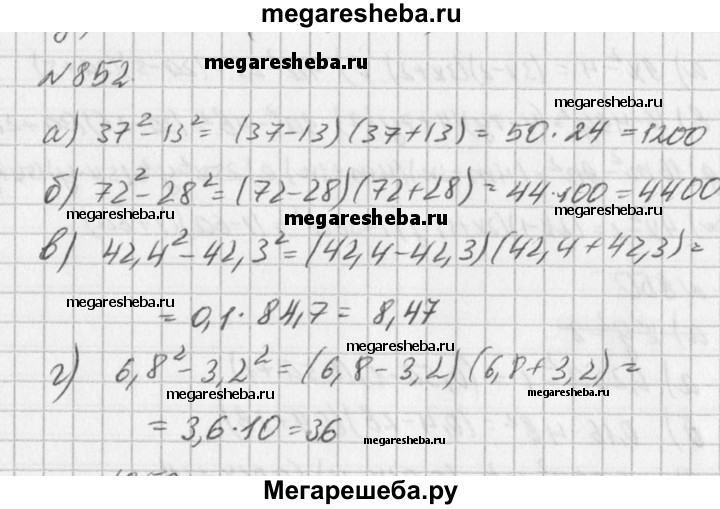 megaresheba.ru
N 852
megaresheba.ru
megaresheba.ru
а) 37²-13² = (37-13)(37+13) = 50·24 = 1200
б) 72²-28² = (72-28)(72+28) = 44·100 = 4400
megaresheba.ru
megaresheba.ru
megaresheba.ru
в) 42,4²-42,3² = (42,4-42,3)(42,4+42,3) =
megaresheba.ru
= 0,1·84,7 = 8,47
megaresheba.ru
г) 6,8²-3,2² = (6,8-3,2)(6,8+3,2) =
megaresheba.ru
megaresheba.ru
= 3,6·10 = 36
megaresheba.ru
Мегарешеба.ру